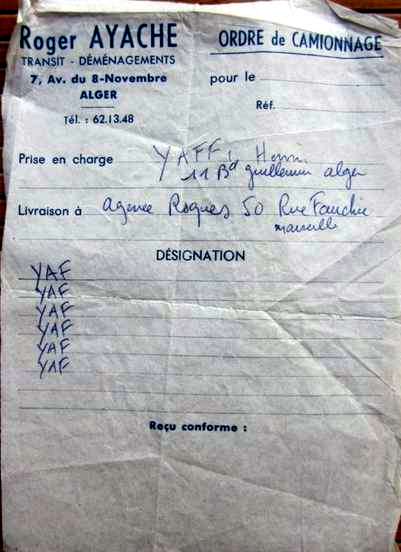 Roger AYACHE
TRANSIT - DÉMÉNAGEMENTS
7, Av. du 8-Novembre
ALGER
Tél. : 62.13.48
ORDRE de CAMIONNAGE
pour le
Réf.
Prise en charge YAFFI
11 Bd guillemin alger
Livraison à agence Roques 50 Rue
marseille
DÉSIGNATION
YAF
YAF
YAF
YAF
YAF
YAF
Reçu conforme :